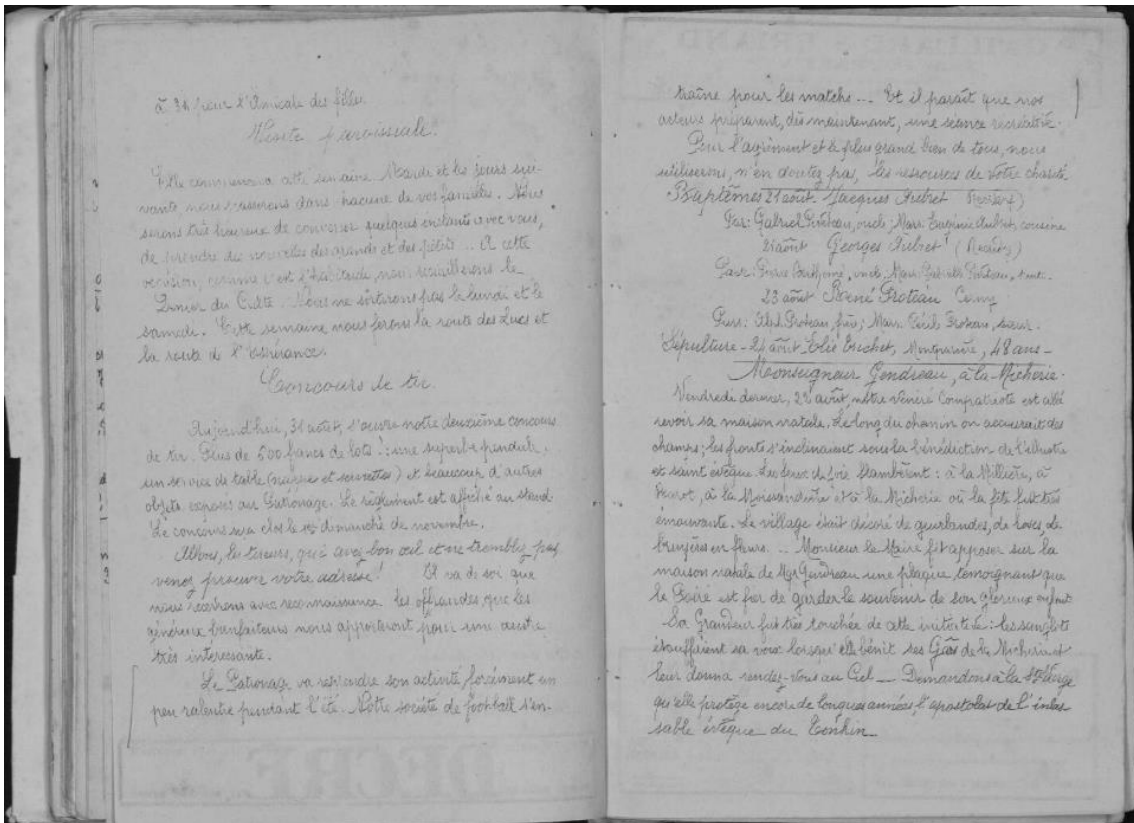 à 3h pour l'Amicale des filles.
Visite paroissiale.
Elle commencera cette semaine. Mardi et les jours sui-
vants nous passerons dans chacune de vos familles. Nous
serons très heureux de converser quelques instants avec vous,
de prendre des nouvelles des grands et des petits... A cette
occasion, comme c'est l'habitude, nous recueillerons le
Denier du Culte. Nous ne sortirons pas le lundi et le
samedi. Cette semaine nous ferons la route des Lucs et
la route de l'Essérance.
Concours de tir.
Aujourd'hui, 31 août, s'ouvre notre deuxième concours
de tir. Plus de 500 francs de lots! : une superbe pendule,
un service de table (nappe et serviettes) et beaucoup d'autres
objets exposés au Patronage. Le règlement est affiché au stand.
Le concours sera clos le dimanche de novembre.
Allons, les tireurs, qui avez bon œil et ne tremblez pas,
venez prouver votre adresse! Il va de soi que
nous recevrons avec reconnaissance les offrandes que les
généreux bienfaiteurs nous apporteront pour une œuvre
très intéressante.
Le Patronage va reprendre son activité, forcément un
peu ralentie pendant l'été. Notre société de football s'en-
traîne pour les matchs... Et il paraît que nos
acteurs préparent, dès maintenant, une séance récréative.
Pour l'agrément et le plus grand bien de tous, nous
utiliserons, n'en doutez pas, les ressources de votre charité.
Baptêmes 21 août Jacques Aubret
Par: Gabriel oncle; Marr. Eugénie Aubret, cousine
21 août Georges Aubret
Parr: Pierre oncle; Marr: Gabrielle tante.
23 août René Proteau
Parr: Abel Proteau, frère; Marr. Cécile Proteau, sœur.
Sépulture - 24 août Elie 48 ans -
Monseigneur Gendreau, à la Micherie.
Vendredi dernier, 22 août, notre vénéré Compatriote est allé
revoir sa maison natale. Le long du chemin on accourait des
champs; les fronts s'inclinaient sous la bénédiction de l'illustre
et saint évêque. Les feux de joie flambèrent : à la Millière, à
à la et à la Micherie où la fête fut très
émouvante. Le village était décoré de guirlandes, de roses, de
bruyères en fleurs... Monsieur le Maire fit apposer sur la
maison natale de Mgr Gendreau une plaque témoignant que
le Poiré est fier de garder le souvenir de son glorieux enfant.
Sa Grandeur fut très touchée de cette initiative : les sanglots
étouffaient sa voix lorsqu'elle bénit ses Gâs de la Micherie et
leur donna rendez-vous au Ciel — Demandons à la Ste Vierge
qu'elle protège encore de longues années l'apostolat de l'inlas
sable évêque du Tonkin —